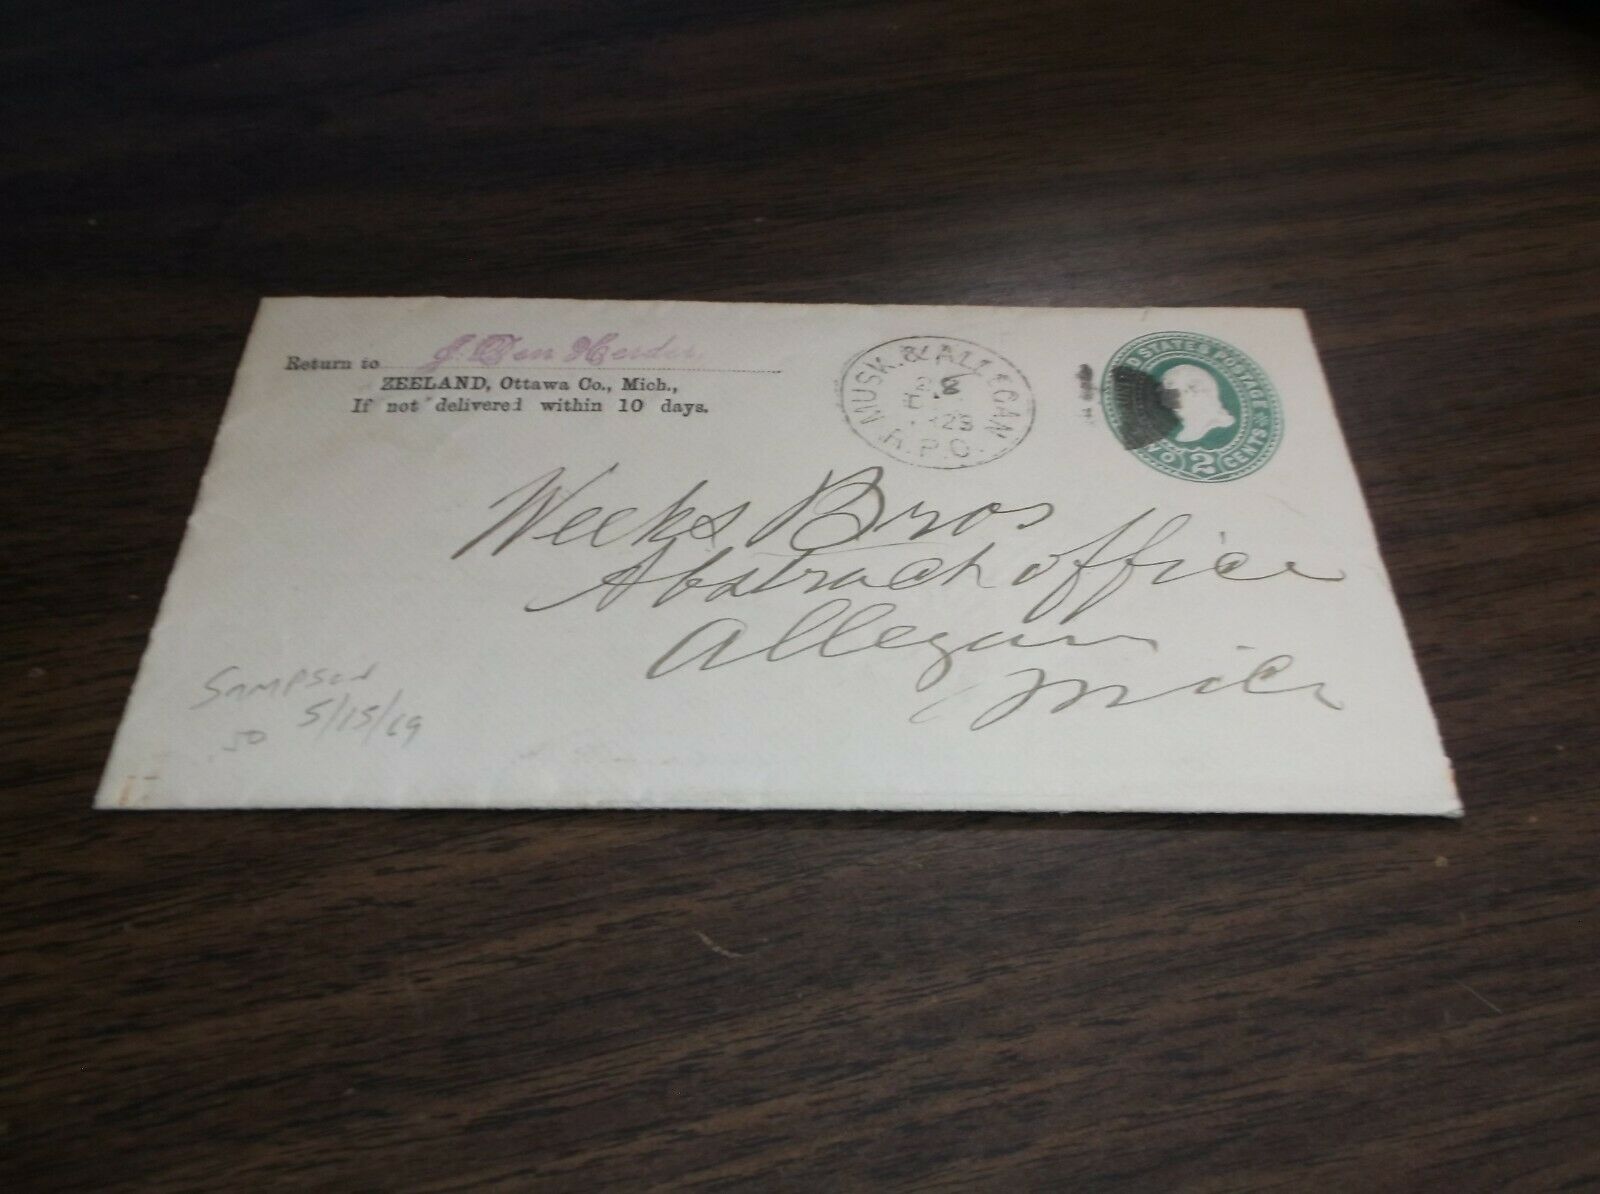 Return to J. Den Herder,
ZEELAND, Ottawa Co., Mich.,
If not delivered within 10 days.
MUSK. & ALLEGAN
R.P.O.
STATES POSTAGE
TWO 2 CENTS
Weeks Bros
Abstract office
Allegan
Mich
SAMPSON
5/15/69
.50